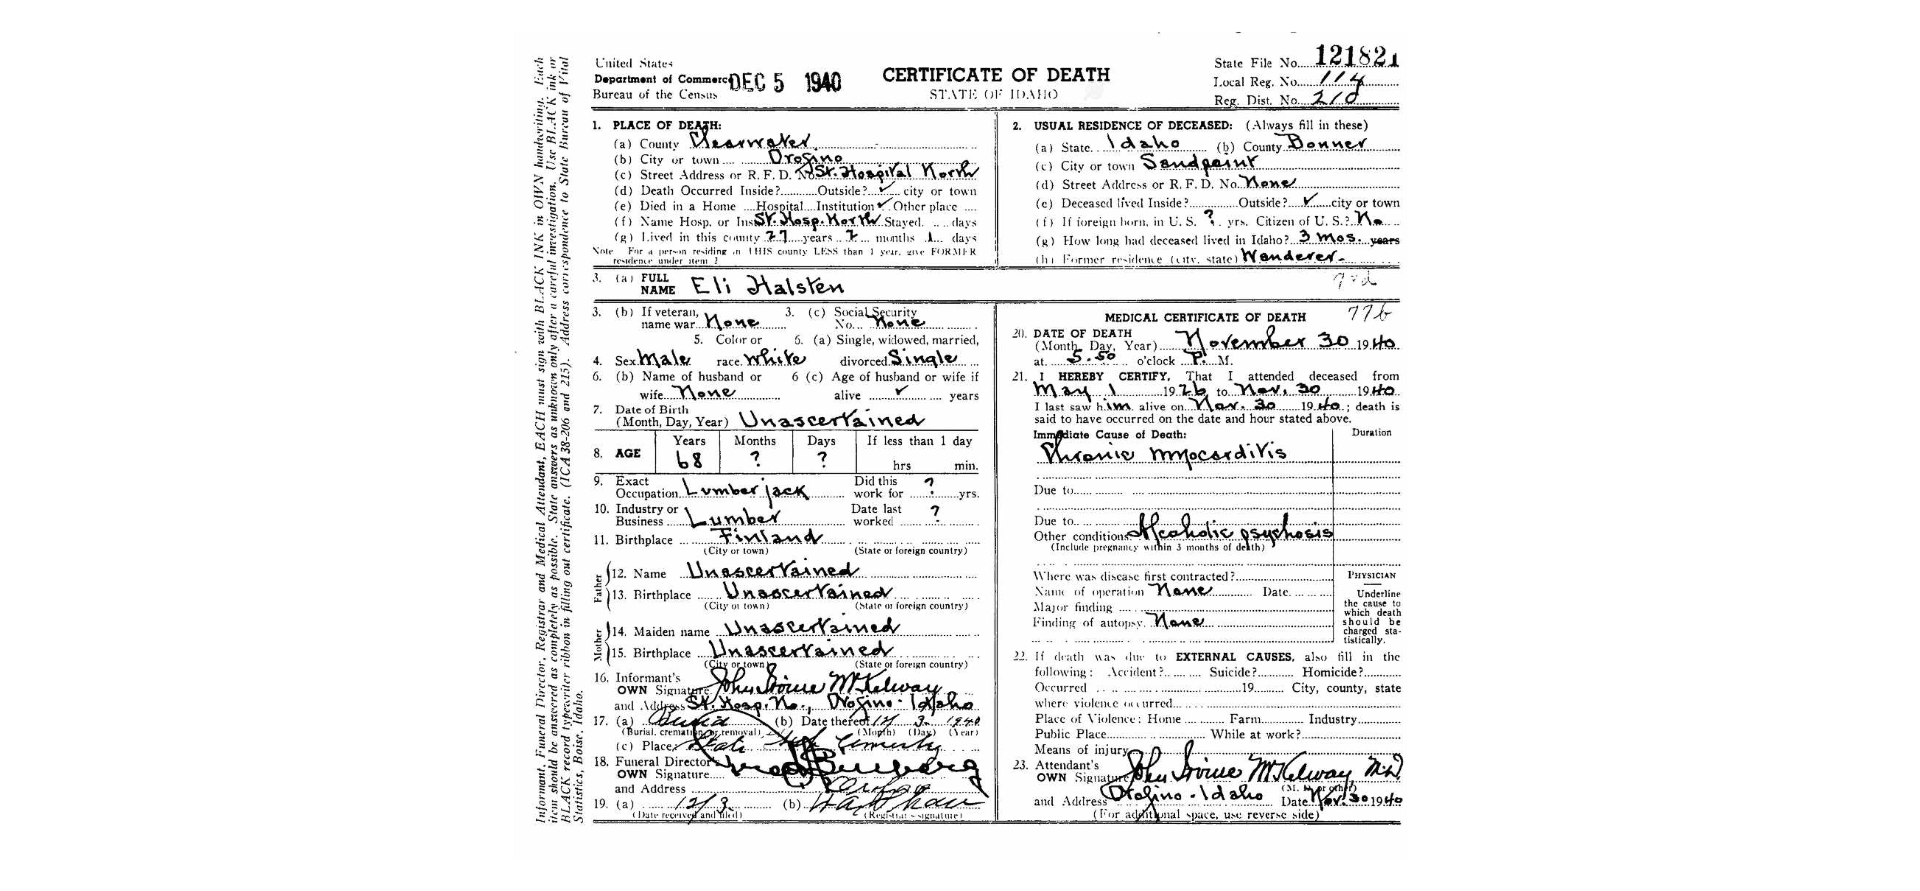 United States
Department of Commerce
Bureau of the Census
DEC 5 1940
CERTIFICATE OF DEATH
STATE OF IDAHO
State File No. 121821
Local Reg. No. 114
Reg. Dist. No. 210
Informant, Funeral Director, Registrar and Medical Attendant, EACH must sign with BLACK INK in OWN handwriting. Each
item should be answered as completely as possible. State answers as unknown only after a careful investigation. Use BLACK ink or
BLACK record typewriter ribbon in filling out certificate. (ICA 38-206 and 215). Address correspondence to State Bureau of Vital
Statistics, Boise, Idaho.
1. PLACE OF DEATH:
(a) County Clearwater
(b) City or town Orofino
(c) Street Address or R. F. D. No. St. Hospital North
(d) Death Occurred Inside? Outside? ✓ city or town
(e) Died in a Home Hospital Institution ✓ Other place
(f) Name Hosp. or Inst. St. Hosp. North Stayed days
(g) Lived in this county 27 years 7 months 1 days
Note For a person residing in THIS county LESS than 1 year, give FORMER
residence under item 2
2. USUAL RESIDENCE OF DECEASED: (Always fill in these)
(a) State Idaho (b) County Bonner
(c) City or town Sandpoint
(d) Street Address or R. F. D. No. None
(e) Deceased lived Inside? Outside? ✓ city or town
(f) If foreign born, in U. S. ? yrs. Citizen of U. S.? No
(g) How long had deceased lived in Idaho? 3 mos. years
(h) Former residence (city, state) Wanderer
3. (a) FULL
NAME Eli Halsten
3. (b) If veteran,
name war None
3. (c) Social Security
No. None
5. Color or 6. (a) Single, widowed, married,
4. Sex Male race White divorced Single
6. (b) Name of husband or 6 (c) Age of husband or wife if
wife None alive ✓ years
7. Date of Birth
(Month, Day, Year) Unascertained
8. AGE
Years Months Days If less than 1 day
68 ? ? hrs min.
9. Exact
Occupation Lumberjack
Did this
work for ? yrs.
10. Industry or
Business Lumber
Date last
worked ?
11. Birthplace Finland
(City or town) (State or foreign country)
Father
12. Name Unascertained
13. Birthplace Unascertained
(City or town) (State or foreign country)
Mother
14. Maiden name Unascertained
15. Birthplace Unascertained
(City or town) (State or foreign country)
16. Informant's
OWN Signature John Irvine McKelway
and Address St. Hosp. No., Orofino - Idaho
17. (a) Burial (b) Date thereof 12 3 1940
(Burial, cremation or removal) (Month) (Day) (Year)
(c) Place State Cemetery
18. Funeral Director's
OWN Signature
and Address
19. (a) 12/3 (b)
(Date received and filed) (Registrar's signature)
77b
MEDICAL CERTIFICATE OF DEATH
20. DATE OF DEATH
(Month, Day, Year) November 30 1940
at 5.50 o'clock P. M.
21. I HEREBY CERTIFY, That I attended deceased from
May 1 1926 to Nov. 30 1940
I last saw him alive on Nov. 30 1940; death is
said to have occurred on the date and hour stated above.
Immediate Cause of Death: Duration
Chronic myocarditis
Due to
Due to
Other conditions Alcoholic psychosis
(Include pregnancy within 3 months of death)
Where was disease first contracted?
Name of operation None Date
Major finding
Finding of autopsy None
PHYSICIAN
Underline
the cause to
which death
should be
charged sta-
tistically.
22. If death was due to EXTERNAL CAUSES, also fill in the
following: Accident? Suicide? Homicide?
Occurred 19 City, county, state
where violence occurred
Place of Violence: Home Farm Industry
Public Place While at work?
Means of injury
23. Attendant's
OWN Signature John Irvine McKelway, M.D.
(M. D. or other)
and Address Orofino - Idaho Date Nov. 30 1940
(For additional space, use reverse side)